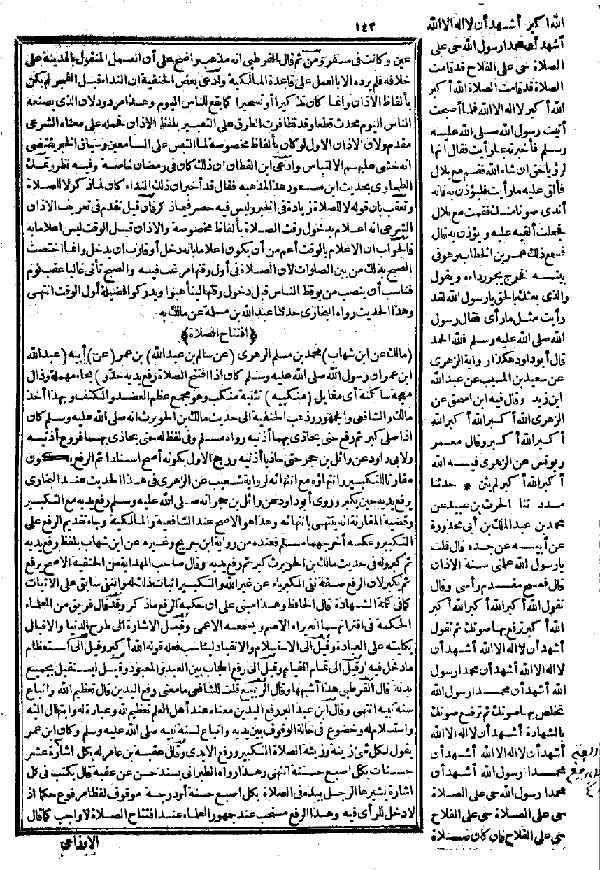 ١٤٣
عين وكانت في سفر ومن ثم قال القرطبي انه مذهب واضح على أن العمل المنقول بالمدينة على
خلافه فلم يرده الا بالعمل على قاعدة المالكية وادعى بعض الحنفية ان النداء قبل الفجر لم يكن
بألفاظ الاذان وانما كان تذكيرا أو تسحيرا كما يقع للناس اليوم وهذا مردود لان الذي يصنعه
الناس اليوم محدث قطعا وقد تظافرت الطرق على التعبير بلفظ الاذان فحمله على معناه الشرعي
مقدم ولان الاذان الاول لو كان بألفاظ مخصوصة لما التبس على السامعين وسياق الخبر يقتضي
انه خشي عليهم الالتباس وادعى ابن القطان ان ذلك كان في رمضان خاصة وفيه نظر
وتعقب بان قوله لا للصلاة زيادة في الخبر وليس فيه حصر فيما ذكر فان قيل تقدم في تعريف الاذان
الشرعي انه اعلام بدخول وقت الصلاة بألفاظ مخصوصة والاذان قبل الوقت ليس اعلاما به
فالجواب ان الاعلام بالوقت أعم من أن يكون اعلاما بانه دخل أو قارب أن يدخل وانما اختصت
الصبح بذلك من بين الصلوات لان الصلاة في أول وقتها مرغب فيه والصبح تأتي غالبا عقب نوم
فناسب أن ينصب من يوقظ الناس قبل دخول وقتها ليتأهبوا ويدركوا فضيلة أول الوقت انتهى
وهذا الحديث رواه البخاري حدثنا عبد الله بن مسلمة عن مالك به
(افتتاح الصلاة)
(مالك عن ابن شهاب) محمد بن مسلم الزهري (عن سالم بن عبد الله) بن عمر (عن) أبيه (عبد الله
ابن عمر ان رسول الله صلى الله عليه وسلم كان اذا افتتح الصلاة رفع يديه حذو) بحاء مهملة وذال
معجمة ساكنة أي مقابل (منكبيه) تثنية منكب وهو مجمع عظم العضد والكتف وبهذا أخذ
مالك والشافعي والجمهور وذهب الحنفية الى حديث مالك بن الحويرث انه صلى الله عليه وسلم كان
اذا صلى كبر ثم رفع حتى يحاذي بهما أذنيه رواه مسلم وفي لفظ له حتى يحاذي بهما فروع أذنيه
ولابي داود عن وائل بن حجر حتى حاذتا أذنيه ورجح الاول بكونه أصح اسنادا ثم الرفع يكون
مقارنا للتكبير وانتهاؤه مع انتهائه لرواية شعيب عن الزهري في هذا الحديث عند البخاري
يرفع يديه حين يكبر وروى أبو داود عن وائل بن حجر انه صلى الله عليه وسلم رفع يديه مع التكبير
وقضية المقارنة انه ينتهي بانتهائه وهذا هو الاصح عند الشافعية والمالكية وجاء تقديم الرفع على
التكبير وعكسه أخرجهما مسلم فعنده من رواية ابن جريج وغيره عن ابن شهاب بلفظ رفع يديه
ثم كبر وله في حديث مالك بن الحويرث كبر ثم رفع يديه وقال صاحب الهداية عن الحنفية الاصح يرفع
ثم يكبر لان الرفع صفة نفي الكبرياء عن غير الله والتكبير اثبات ذلك له والنفي سابق على الاثبات
كما في كلمة الشهادة قال الحافظ وهذا مبني على ان حكمة الرفع ما ذكر وقد قال فريق من العلماء
الحكمة في اقترانهما انه يراه الاصم ويسمعه الاعمى وقيل الاشارة الى طرح الدنيا والاقبال
بكليته على العبادة وقيل الى الاستسلام والانقياد ليناسب فعله قوله الله أكبر وقيل الى استعظام
ما دخل فيه وقيل الى تمام القيام وقيل الى رفع الحجاب بين العبد والمعبود وقيل ليستقبل بجميع
بدنه قال القرطبي هذا أشبهها وقال الربيع قلت للشافعي ما معنى رفع اليدين قال تعظيم الله واتباع
سنة نبيه انتهى وقال ابن عبد البر رفع اليدين معناه عند أهل العلم تعظيم لله وعبادة له وابتهال اليه
واستسلام له وخضوع في حالة الوقوف بين يديه واتباع لسنة نبيه صلى الله عليه وسلم وكان ابن عمر
يقول لكل شيء زينة وزينة الصلاة التكبير ورفع الايدي وقال عقبة بن عامر له بكل اشارة عشر
حسنات بكل أصبع حسنة انتهى وهذا رواه الطبراني بسند حسن عن عقبة قال يكتب في كل
اشارة يشيرها الرجل بيده في الصلاة بكل أصبع حسنة أو درجة موقوف لفظا مرفوع حكما اذ
لا دخل للرأي فيه وهذا الرفع مستحب عند جمهور العلماء عند افتتاح الصلاة لا واجب كما قال
الاوزاعي
الله أكبر أشهد أن لا اله الا الله
أشهد أن محمدا رسول الله حي على
الصلاة حي على الفلاح قد قامت
الصلاة قد قامت الصلاة الله أكبر
الله أكبر لا اله الا الله فلما أصبحت
أتيت رسول الله صلى الله عليه
وسلم فأخبرته بما رأيت فقال انها
لرؤيا حق ان شاء الله فقم مع بلال
فألق عليه ما رأيت فليؤذن به فانه
أندى صوتا منك فقمت مع بلال
فجعلت ألقيه عليه ويؤذن به قال
فسمع ذلك عمر بن الخطاب وهو في
بيته فخرج يجر رداءه ويقول
والذي بعثك بالحق يا رسول الله لقد
رأيت مثل ما رأى فقال رسول
الله صلى الله عليه وسلم فلله الحمد
قال أبو داود هكذا رواية الزهري
عن سعيد بن المسيب عن عبد الله
ابن زيد وقال فيه ابن اسحق عن
الزهري الله أكبر الله أكبر الله
أكبر الله أكبر وقال معمر
ويونس عن الزهري فيه الله
أكبر الله أكبر لم يثن * حدثنا
مسدد ثنا الحرث بن عبيد عن
محمد بن عبد الملك بن أبي محذورة
عن أبيه عن جده قال قلت
يا رسول الله علمني سنة الاذان
قال فمسح مقدم رأسي وقال
تقول الله أكبر الله أكبر الله أكبر
الله أكبر ترفع بها صوتك ثم تقول
أشهد أن لا اله الا الله أشهد أن
لا اله الا الله أشهد أن محمدا رسول
الله أشهد أن محمدا رسول الله
تخفض بها صوتك ثم ترفع صوتك
بالشهادة أشهد أن لا اله الا الله
أشهد أن لا اله الا الله أشهد أن
محمدا رسول الله أشهد أن
محمدا رسول الله حي على الصلاة
حي على الصلاة حي على الفلاح
حي على الفلاح فان كان صلاة